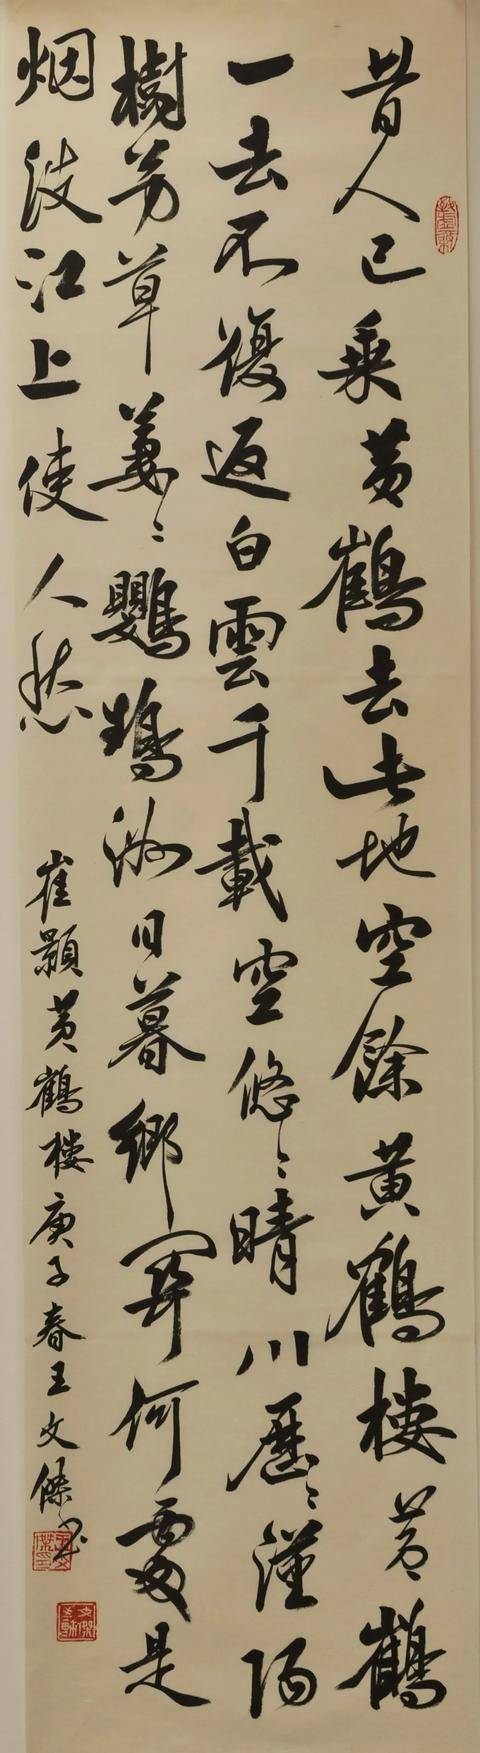 昔人已乘黄鶴去此地空餘黄鶴楼黄鶴
一去不復返白雲千載空悠〻晴川歷〻漢陽
樹芳草萋〻鸚鵡洲日暮鄉関何處是
烟波江上使人愁
崔顥黄鶴楼庚子春王文傑书